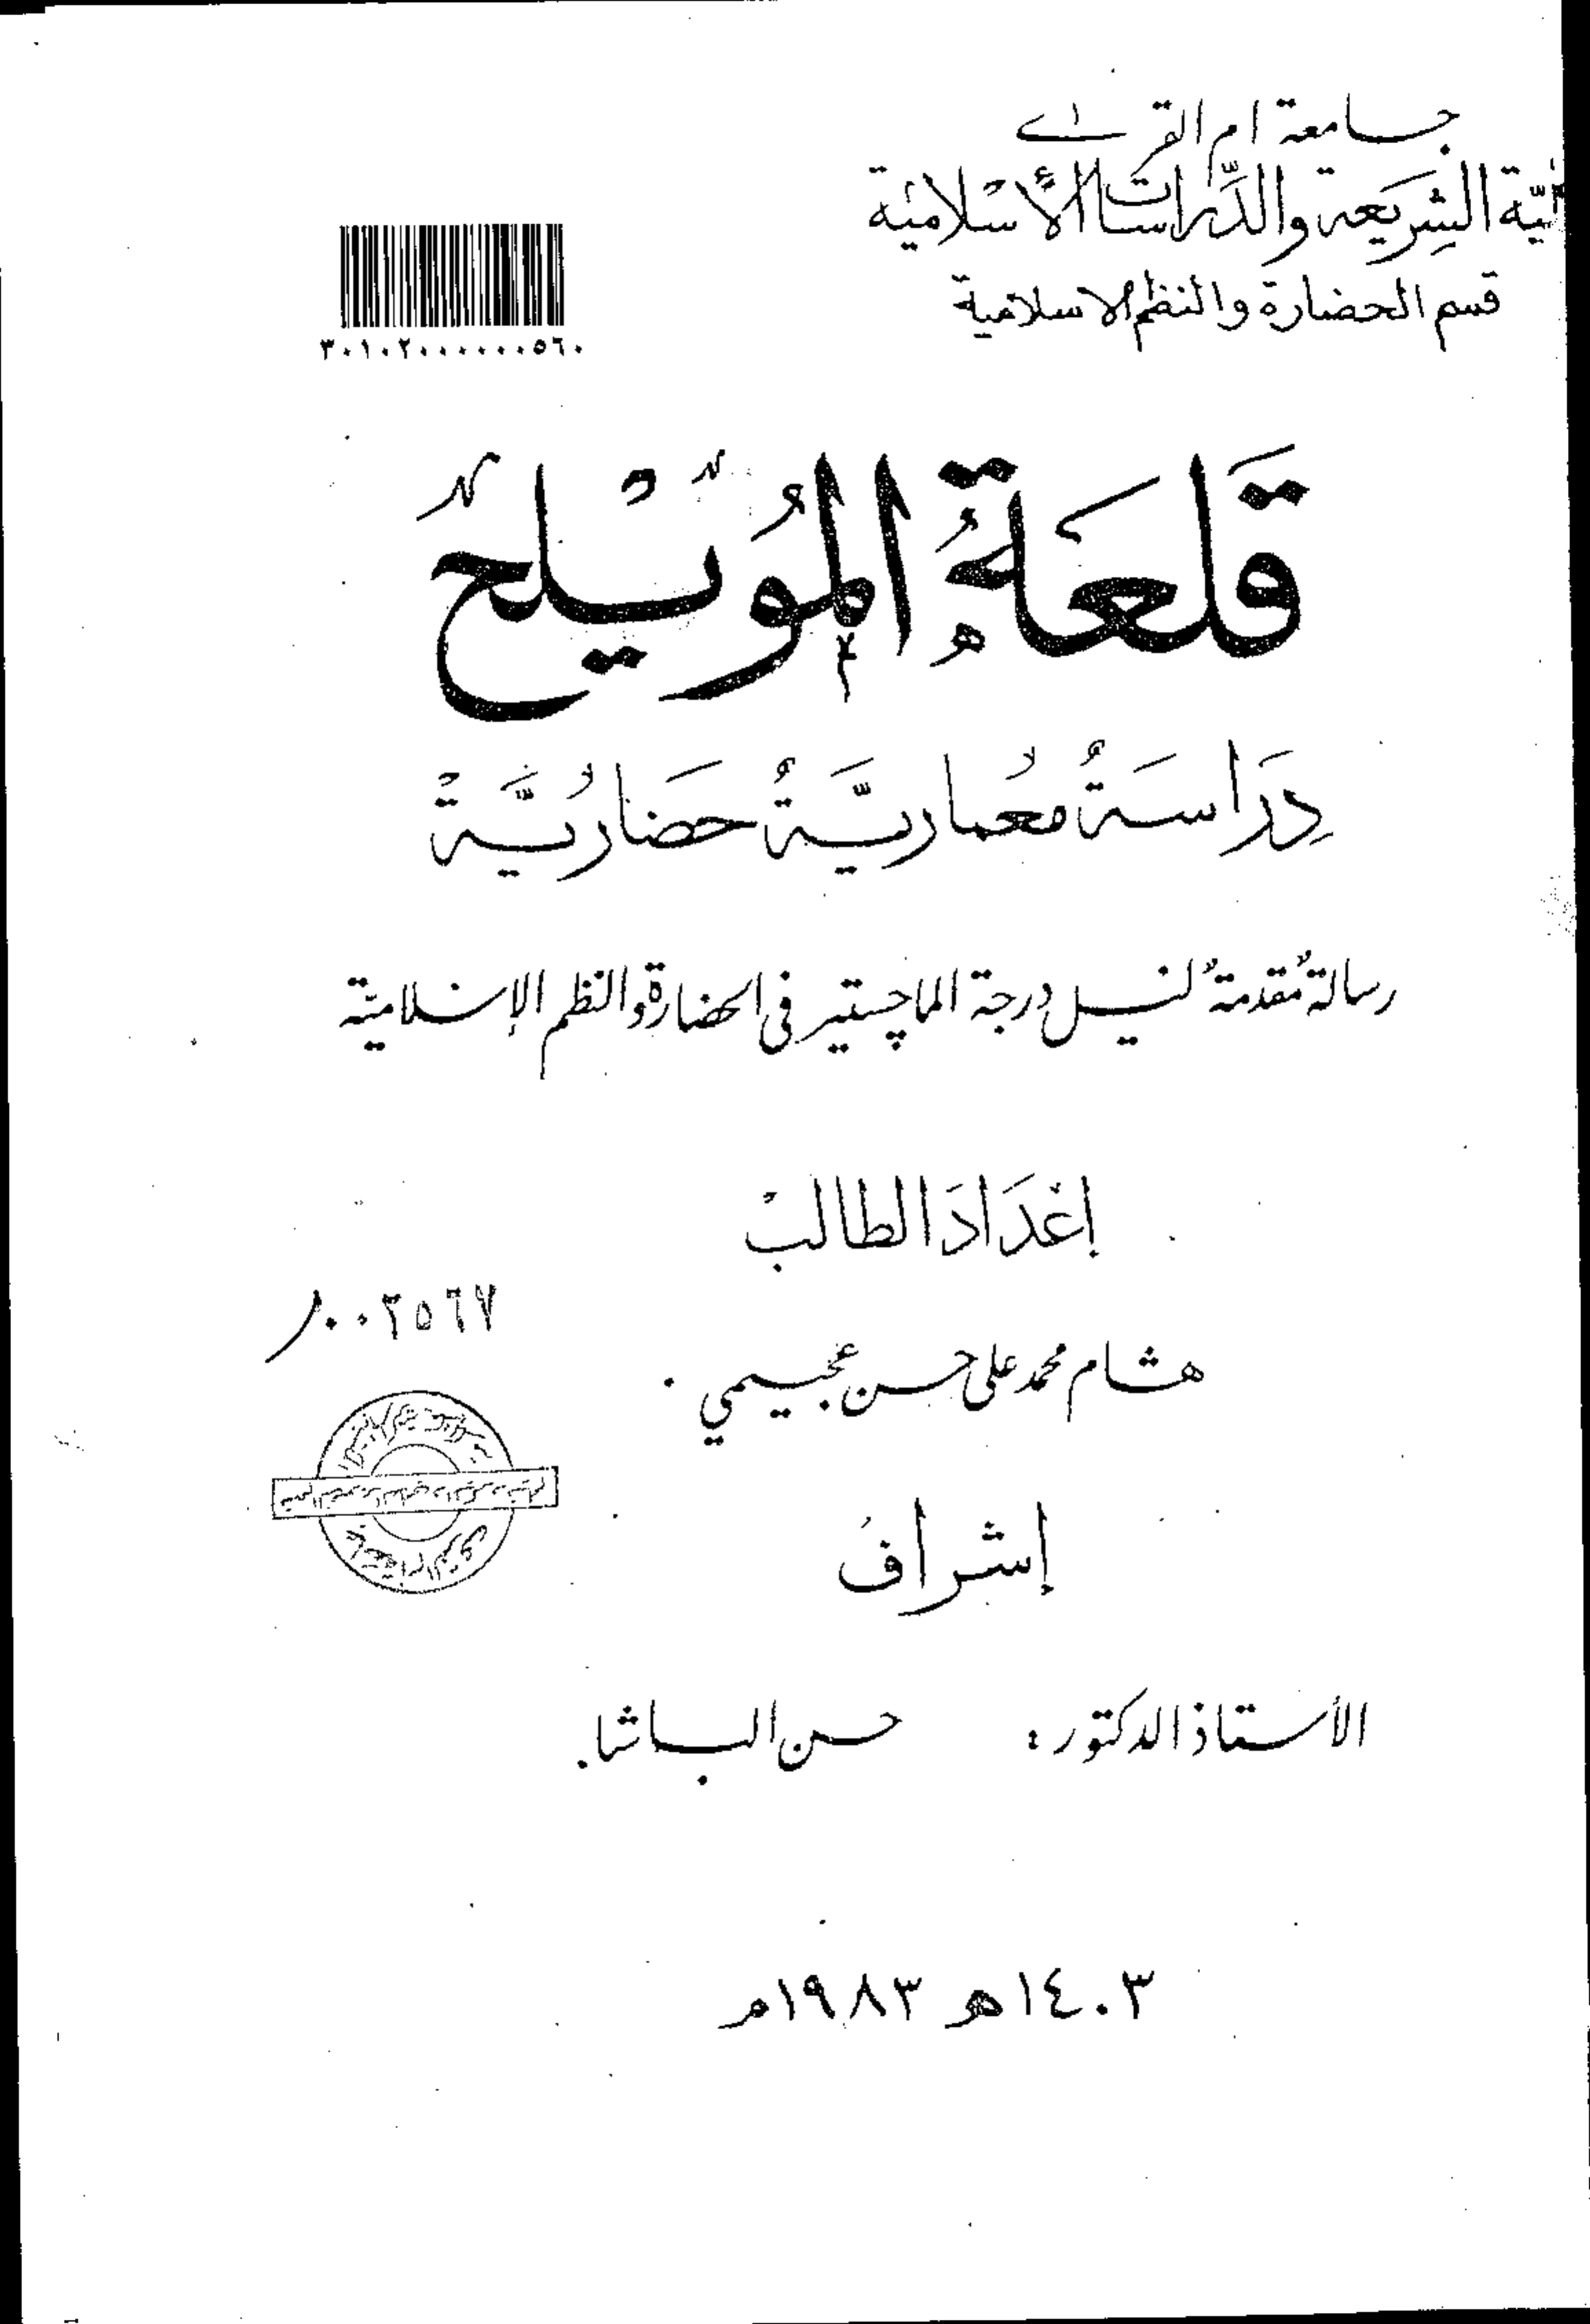 جامعة ام القرى
ية الشريعة والدراسات الأسلامية
قسم الحضارة والنظم الاسلامية
٣٠١٠٢٠٠٠٠٠٠٥٦٠
قَلعَةُ المُوَيْلحْ
دِرَاسَةُ معُماريَّةُ حَضَارُيَّةْ
رسالةٌ مُقدمةٌ لنيل درجة الماچستير فى الحضارة والنظم الإسلاميّة
إعْدَادَ الطالبْ
٠٠٢٥٦٧
هشام محمد على حسن عجيمي .
إشرافُ
الأستاذ الدكتور : حسن الباشا .
١٤٠٣هـ ١٩٨٣م